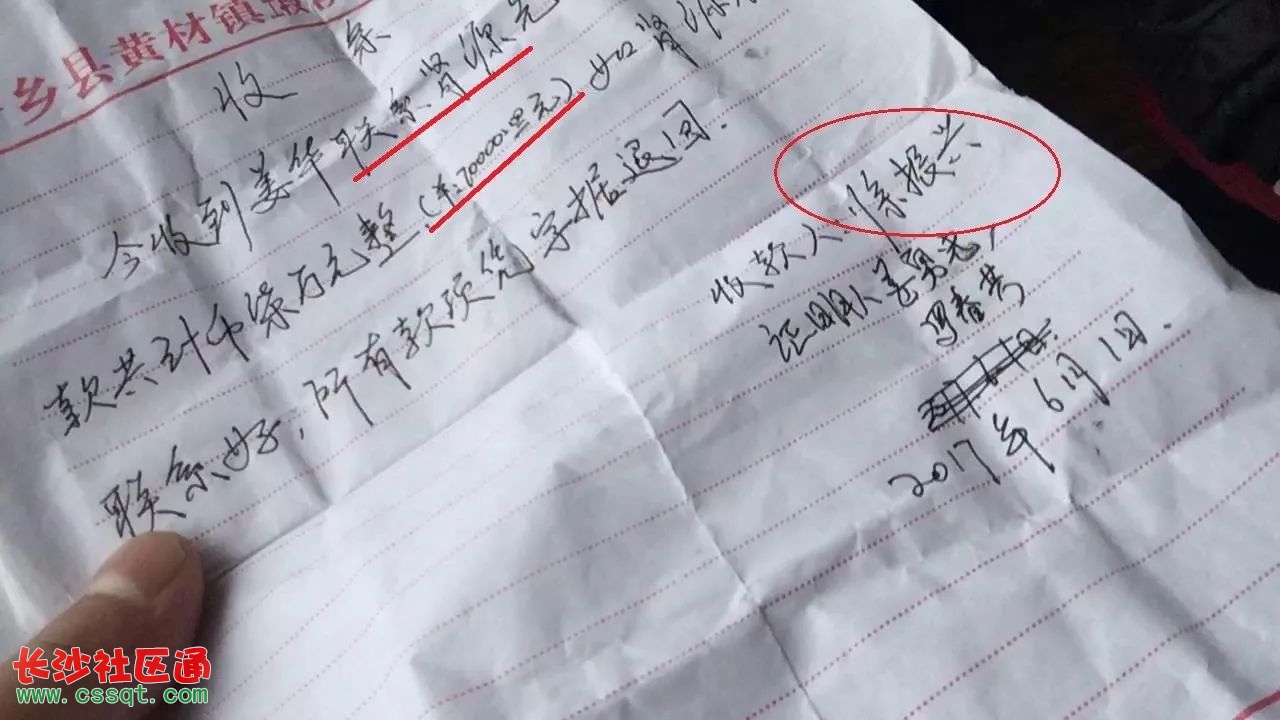 乡县黄材镇
收条
今收到姜华联系肾源先
款共计千柒万元整（¥:70000.00元）如肾源
联系好，所有款项凭字据退回.
收款人:徐报兴
证明人 姜勇志,
冯春芳
2017年6月1日.
长沙社区通
www.cssqt.com